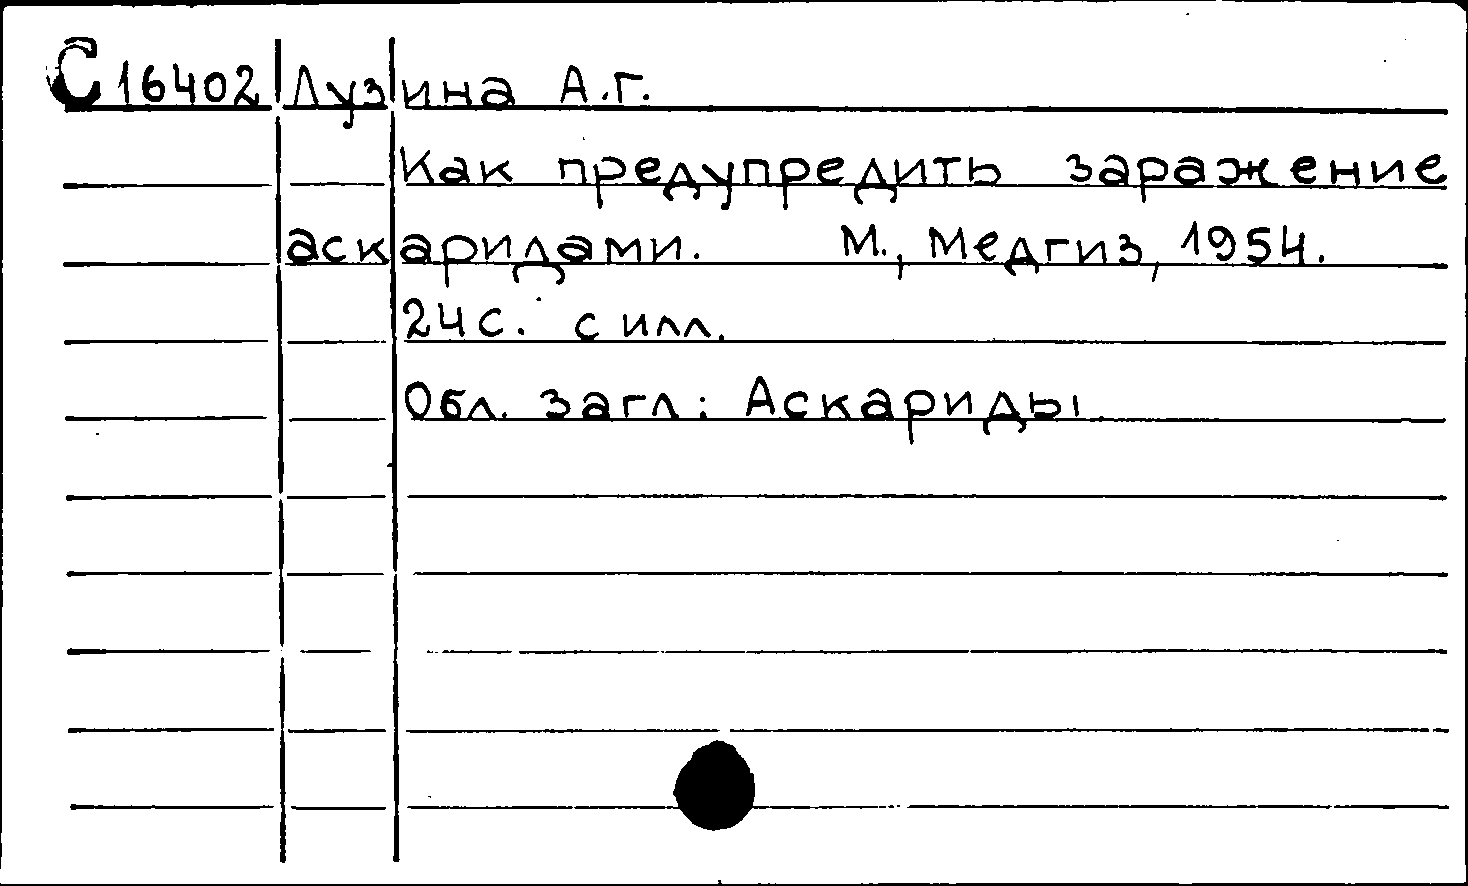 С16402 Лузина А.Г.
Как предупредить заражение
аскаридами. М., Медгиз, 1954.
24с. с илл.
Обл. загл: Аскариды.